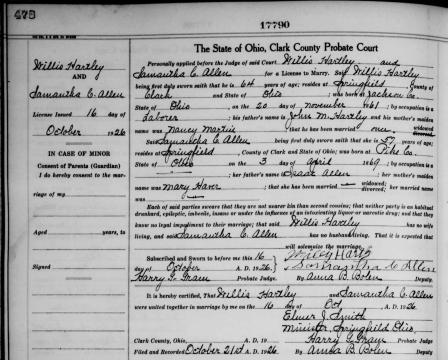 475
17790
The State of Ohio, Clark County Probate Court
Willis Hartley
AND
Samantha C. Allen
License Issued 16 day of
October 1926
IN CASE OF MINOR
Consent of Parents (Guardian)
I do hereby consent to the mar-
riage of my
Aged years, to
Signed
Personally applied before the Judge of said Court Willis Hartley and
Samantha C. Allen for a License to Marry. Said Willis Hartley
being first duly sworn saith that he is 64 years of age; resides at Springfield County of
Clark and State of Ohio ; was born at Jackson Co.
State of Ohio , on the 20 day of November 1861 ; by occupation a
Laborer ; his father's name is John M. Hartley and his mother's maiden
name was Nancy Martin that he has been married one widowed
divorced
Said Samantha C. Allen being first duly sworn saith that she is 57 years of age;
resides at Springfield in Clark County and State of Ohio; was born at Pike Co.
State of Ohio on the 3 day of April 1869 ; by occupation a
; her father's name is Isaac Allen ; her mother's maiden
name was Mary ; that she has been married widowed;
divorced; her married
name was
Each of said parties swears that they are not nearer kin than second cousins; that neither party is an habitual
drunkard, epileptic, imbecile, insane or under the influence of an intoxicating liquor or narcotic drug; and that they
know no legal impediment to their marriage; that said Willis Hartley has no wife
living, and said Samantha C. Allen has no husband living. That it is expected that
will solemnize the marriage.
Subscribed and Sworn to before me this 16
day of October A. D. 1926.
Harry G. Gram Probate Judge. By Anna B. Bolen Deputy.
Samantha C Allen
It is hereby certified, That Willis Hartley and Samantha C. Allen
were united together in marriage by me on the 16 day of Oct. A. D. 1926.
Elmer J. Smith
Minister, Springfield Ohio.
Clark County, Ohio, A. D. 19 Harry G. Gram Probate Judge.
Filed and Recorded October 21st A. D. 1926. By Anna B. Bolen Deputy.